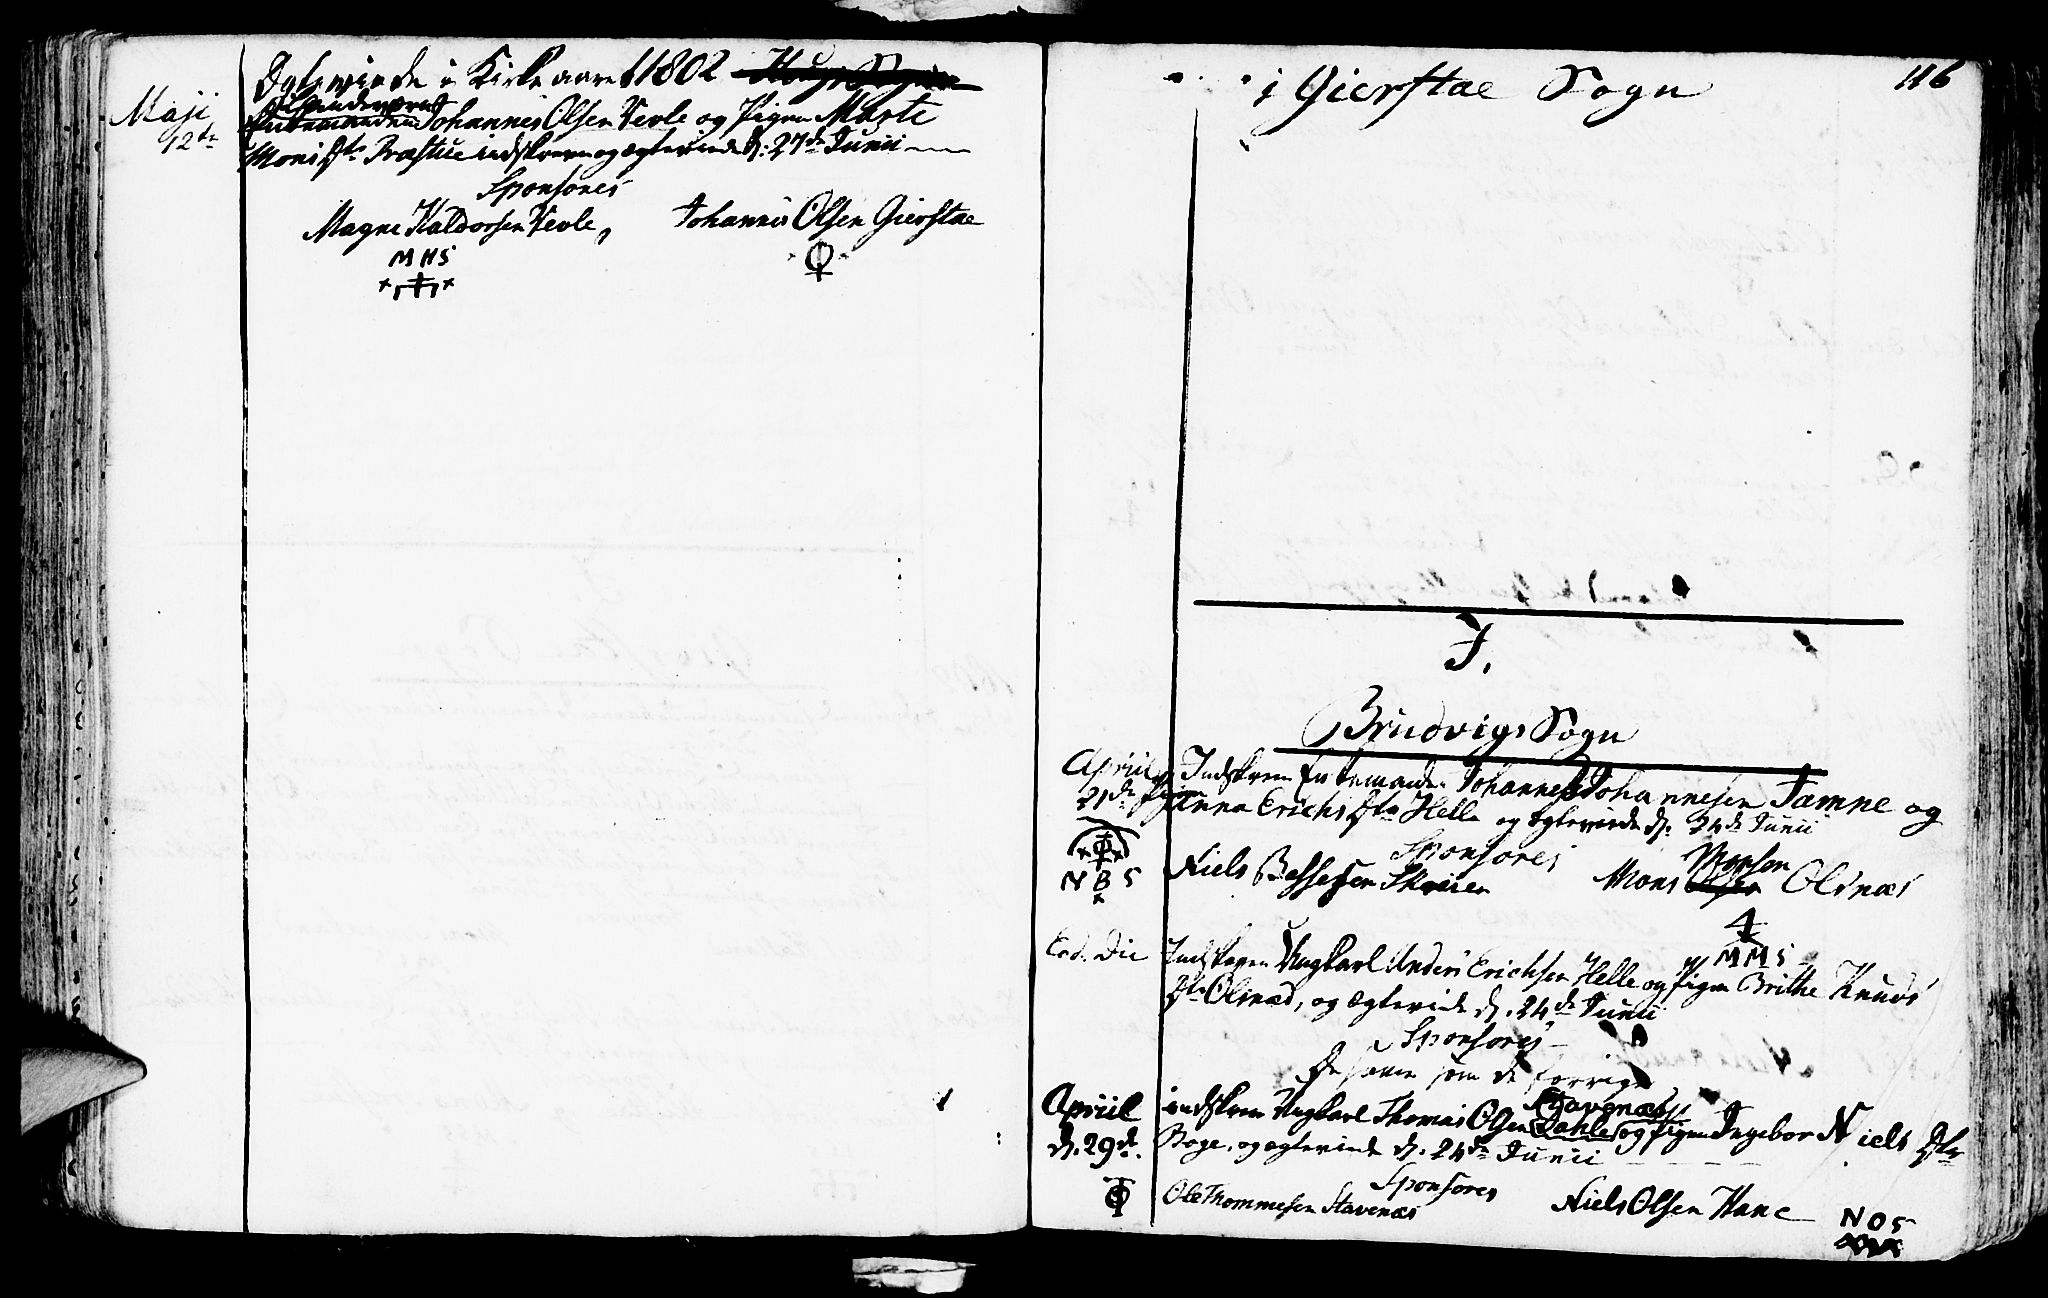 Ægteviede i Kirkeaaret 1802
Maji
12te
Johannes Olsen Vevle og Pigen Marte
Mons Dtr indskreven og ægteviede d: 27de Junii
Sponsores
Magne Haldorsen Vevle, Johannes Olsen Gierstae
MHS
i Gierstae Sogn
116
I.
Brudvigs Sogn
Apriil
21de
Indskreven Enkemanden Johannes Johannesen Tamne og
Pigen Anna Erichs Dtr Helle og ægteviede d: 24de Junii
Sponsores
Niels Bessesen Skreien Mons Olsen Monsen Olsnæs
NBS
MMS
Eod. Die
Indskreven Ungkarl Anders Erichsen Helle og Pigen Brithe Knuds
Dtr Olsnæs, og Ægteviede d. 24de Junii
Sponsores
De samme som de forrige
Apriil
d. 29de
indskreven Ungkarl Thomas Olsen Dahle Stavenæs og Pigen Ingebor Niels Dtr
Boge, og ægteviede d. 24de Junii
Sponsores
Ole Thommesen Stavenæs Niels Olsen Hane
NOS